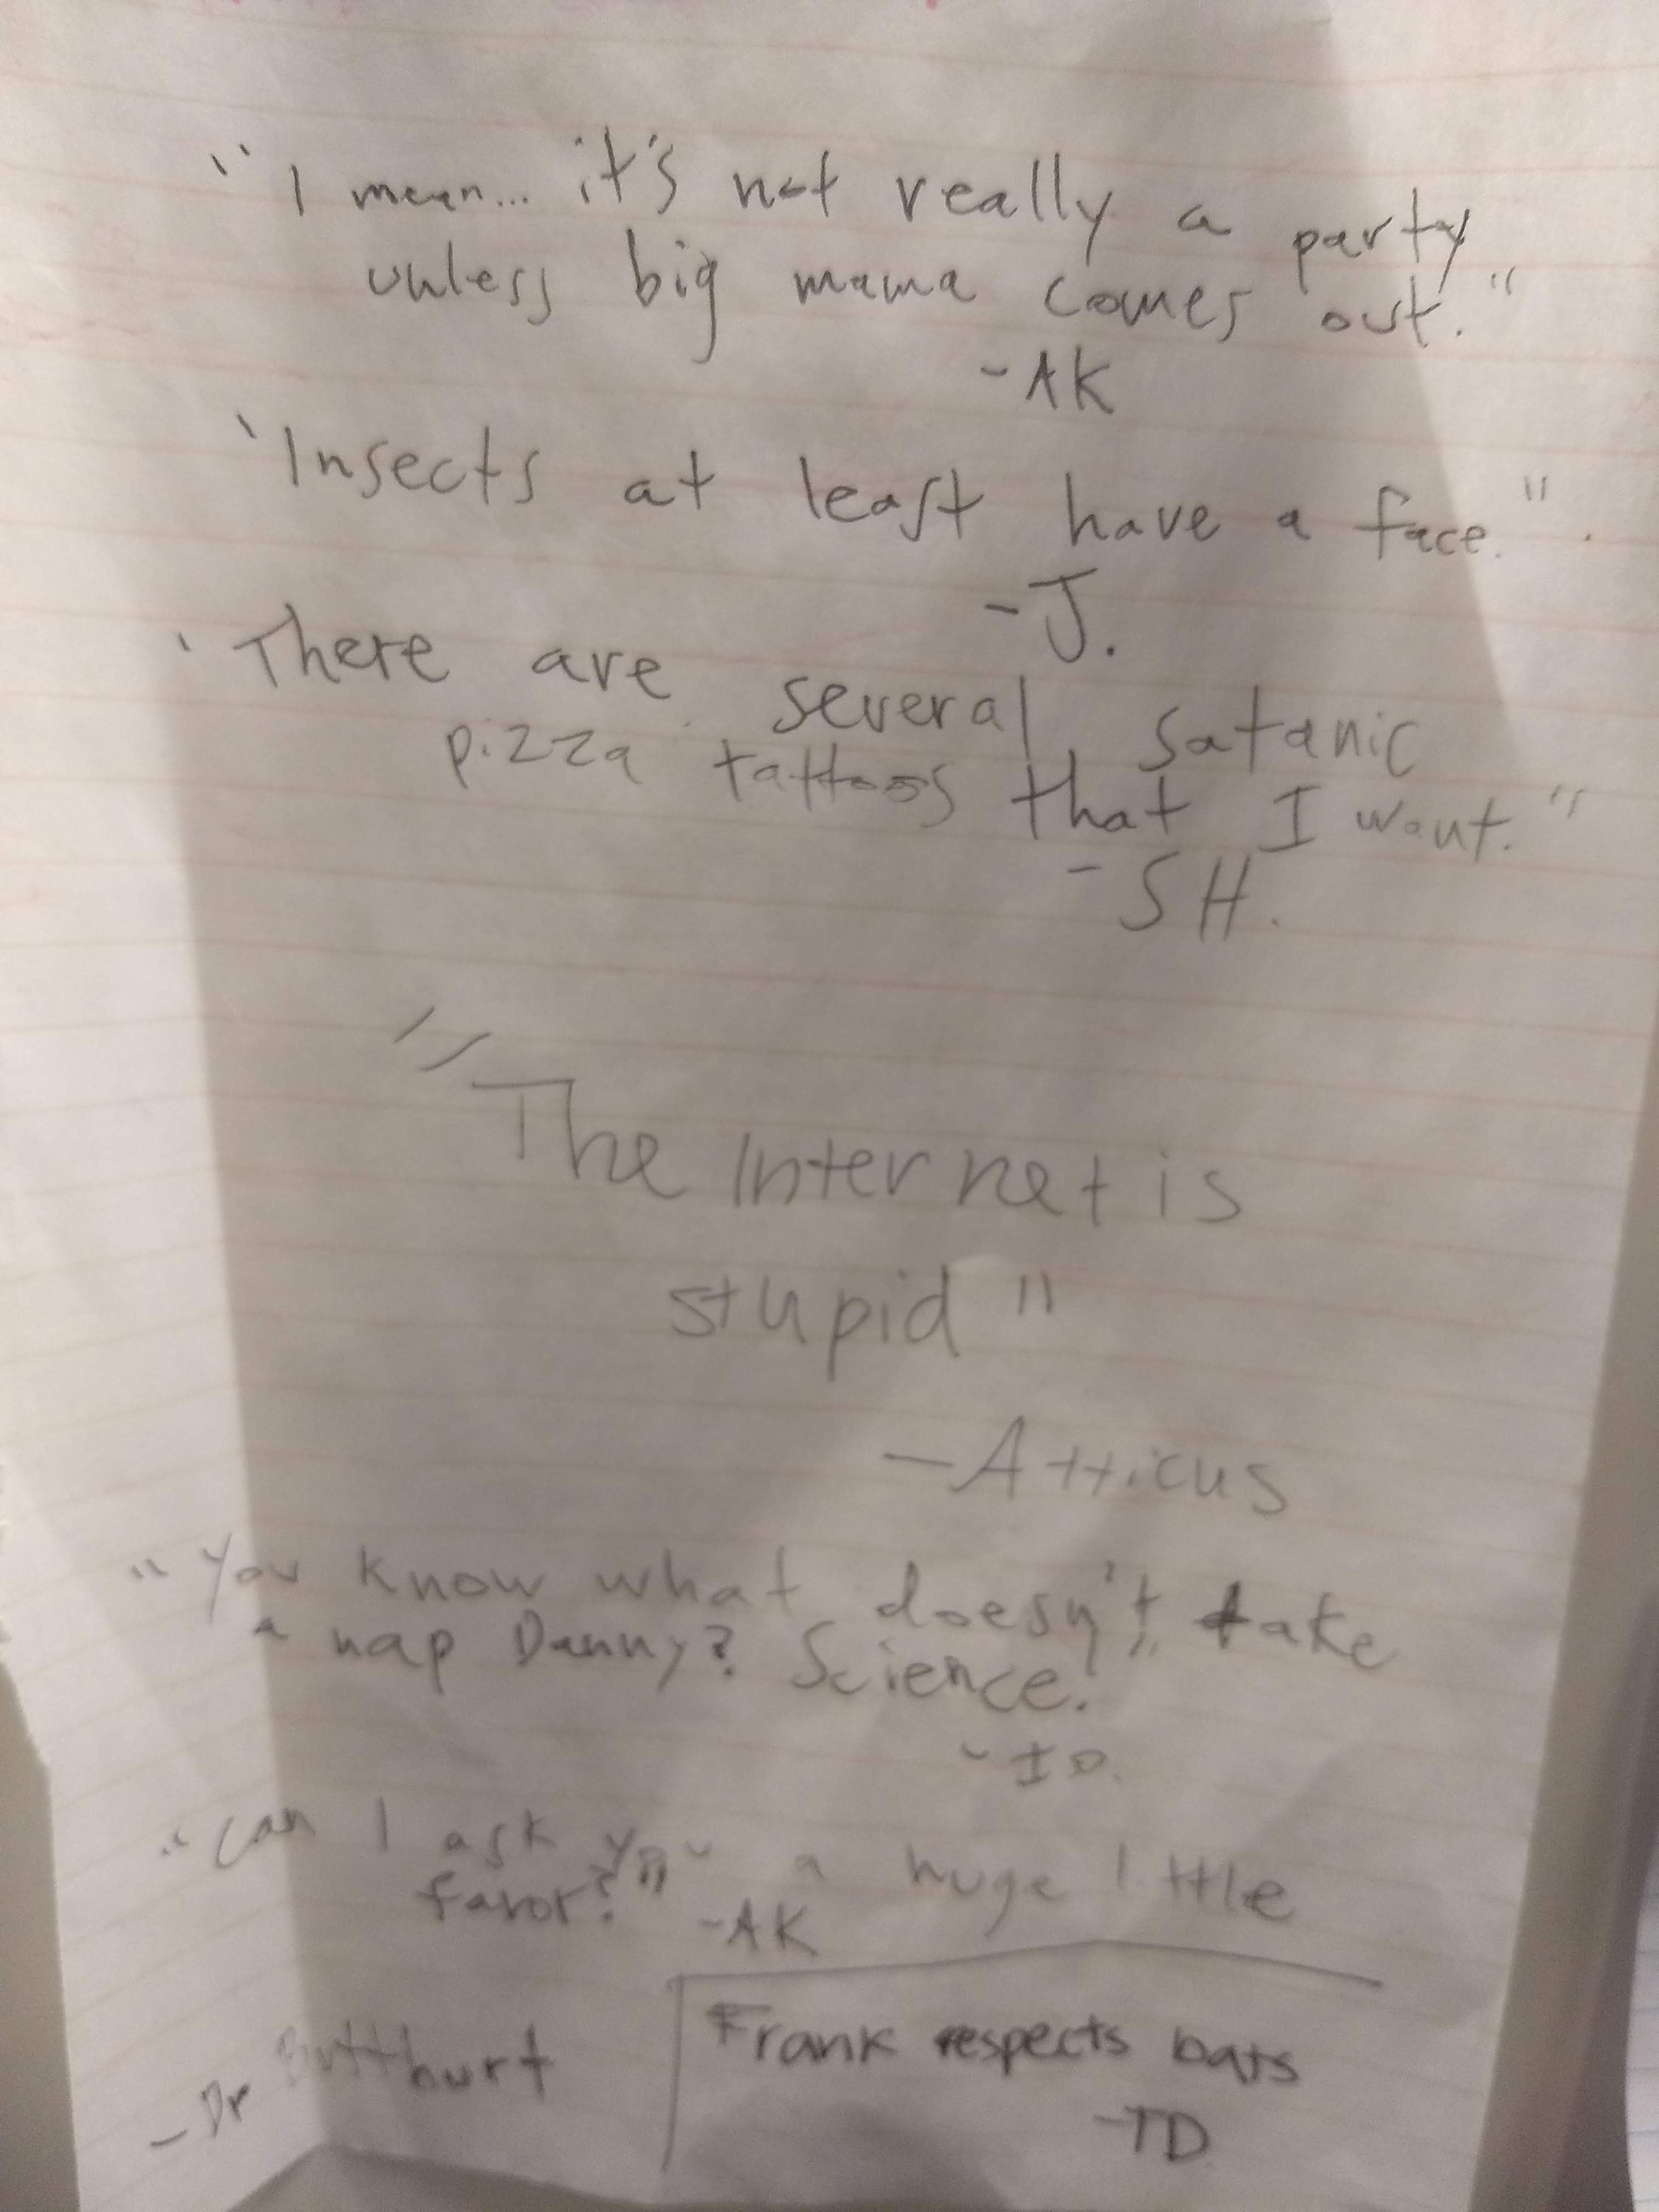 "I mean... it's not really a party
unless big mama comes out."
-AK
"Insects at least have a face."
-J.
"There are several satanic
pizza tattoos that I want."
-SH.
"The Internet is
stupid"
-Atticus
"You know what doesn't take
a nap Danny? Science!"
-ID.
"Can I ask you a huge little
favor?" -AK
-Dr Butthurt
Frank respects bats
-TD